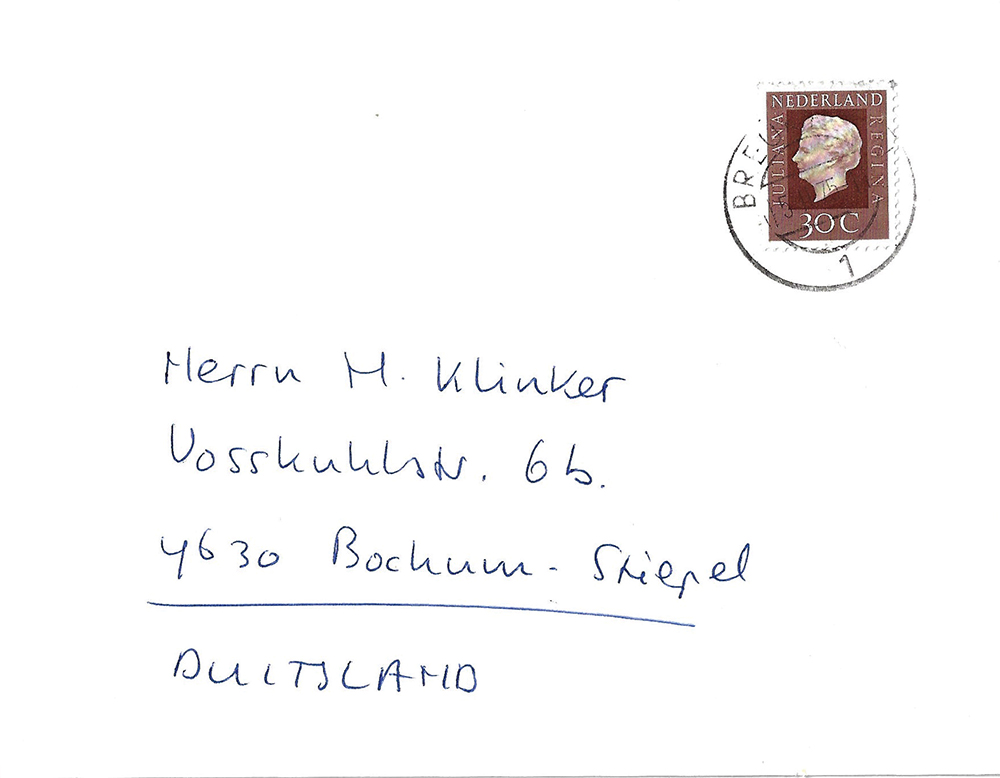 NEDERLAND
JULIANA
REGINA
30 C
1
Herrn M. Klinker
Vosskuhlstr. 6b.
4630 Bochum - Stiepel
DUITSLAND